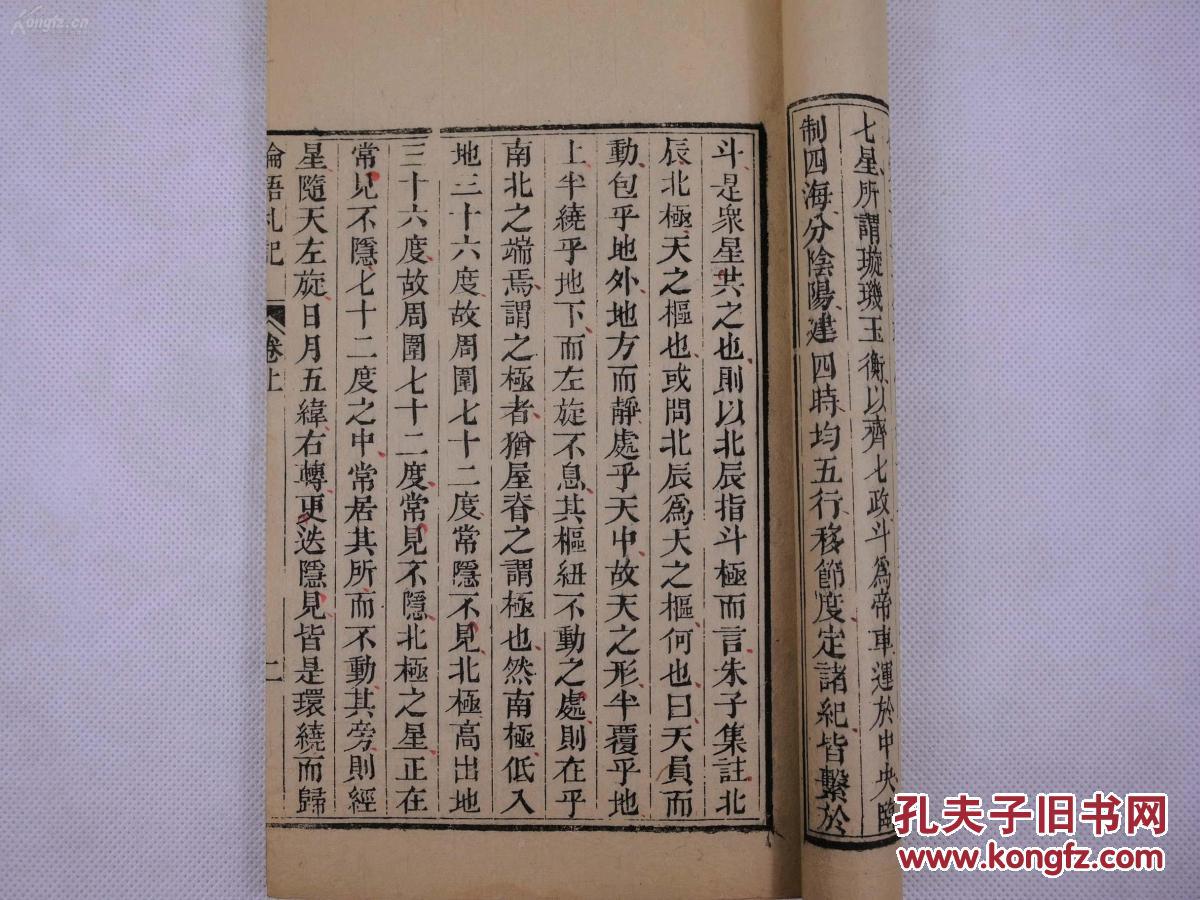 七星所謂璇璣玉衡以齊七政斗爲帝車運於中央臨
制四海分陰陽建四時均五行移節度定諸紀皆繫於
斗是衆星共之也則以北辰指斗極而言朱子集註北
辰北極天之樞也或問北辰爲天之樞何也曰天員而
動包乎地外地方而靜處乎天中故天之形半覆乎地
上半繞乎地下而左旋不息其樞紐不動之處則在乎
南北之端焉謂之極者猶屋脊之謂極也然南極低入
地三十六度故周圍七十二度常隱不見北極高出地
三十六度故周圍七十二度常見不隱北極之星正在
常見不隱七十二度之中常居其所而不動其旁則經
星隨天左旋日月五緯右轉更迭隱見皆是環繞而歸
論語札記 卷上 二
Kongfz.cn
孔夫子旧书网
www.kongfz.com